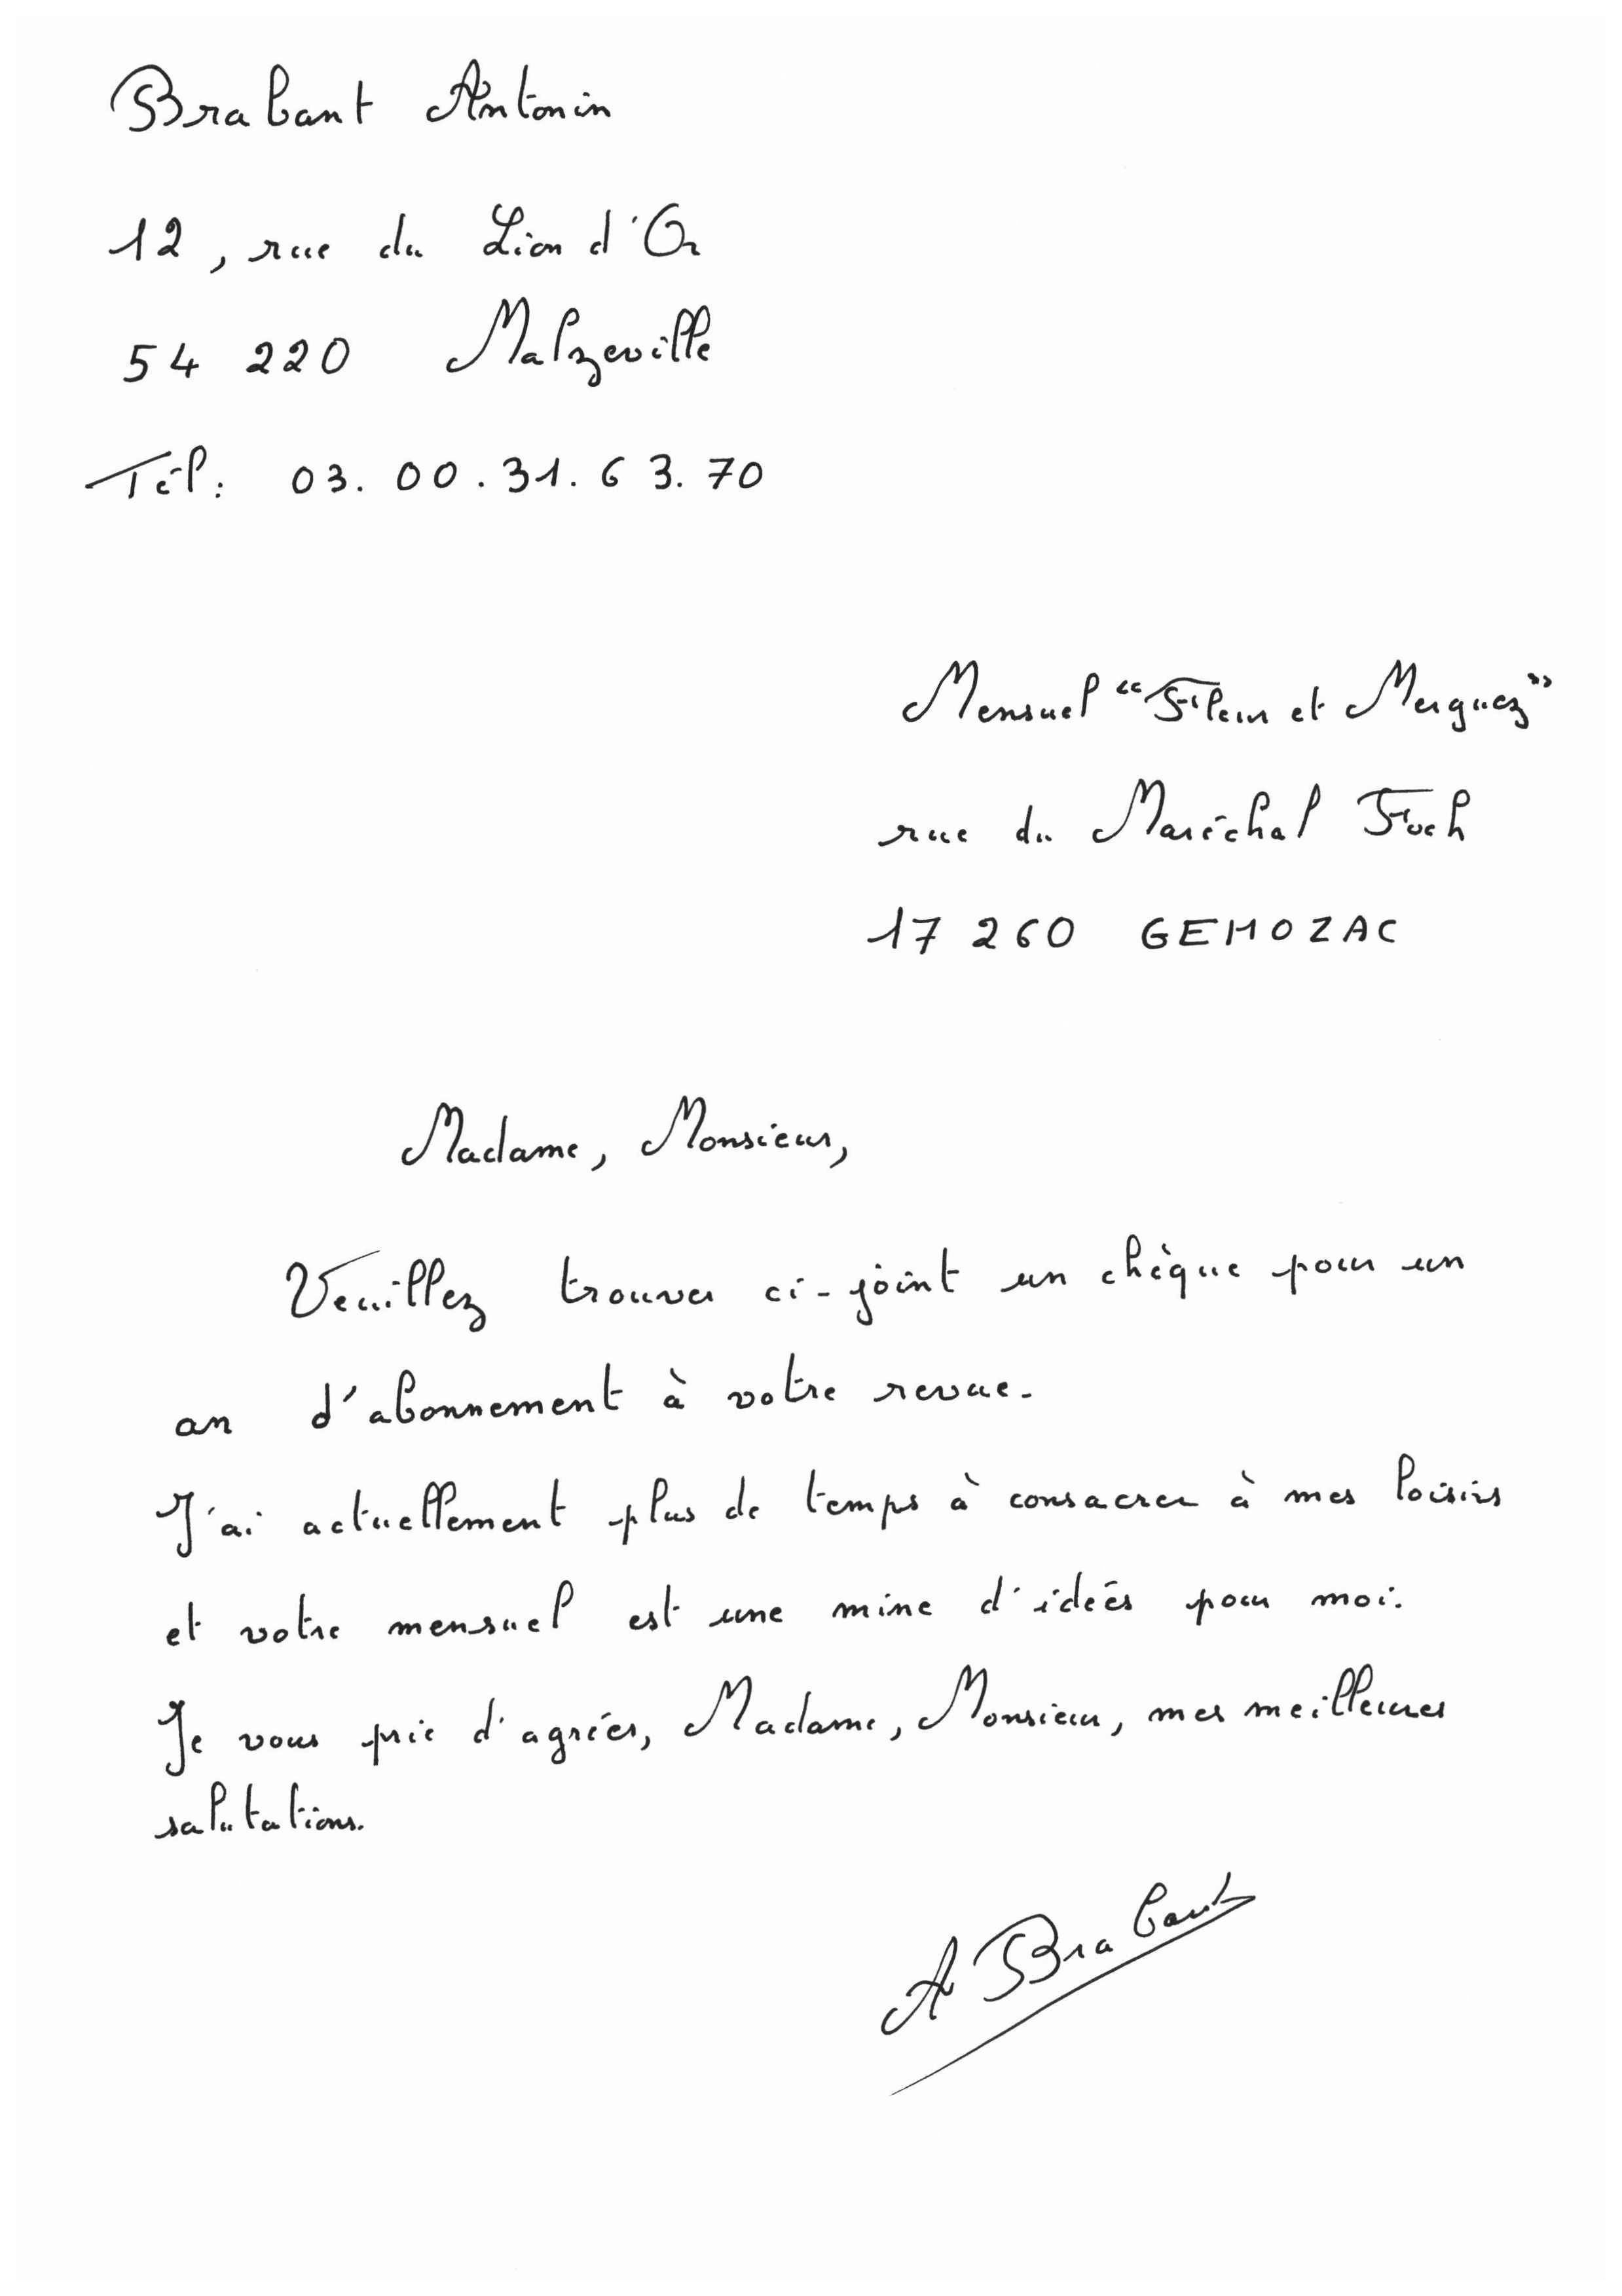 Brabant Antonin
12, rue du Lion d'Or
54 220 Malzeville
Tél: 03. 00. 31. 63. 70
Mensuel "Fleur et Merguez"
rue du Maréchal Foch
17 260 GEMOZAC
Madame, Monsieur,
Veuillez trouver ci-joint un chèque pour un
an d'abonnement à votre revue.
J'ai actuellement plus de temps à consacrer à mes loisirs
et votre mensuel est une mine d'idées pour moi.
Je vous prie d'agréer, Madame, Monsieur, mes meilleures
salutations.
A Brabant